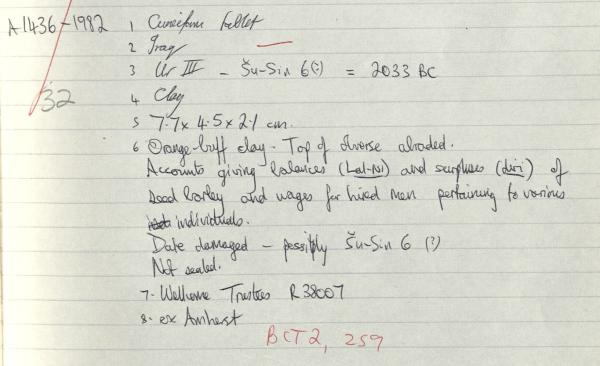 A1436-1982 1 Cuneiform tablet
2 Iraq
3 Ur III - Šu-Sin 6(?) = 2033 BC
32 4 Clay
5 7.7 x 4.5 x 2.1 cm.
6 Orange-buff clay - Top of obverse abraded.
Accounts giving balances (Lal-Ni) and surpluses (diri) of
seed barley and wages for hired men pertaining to various
individuals.
Date damaged - possibly Šu-Sin 6 (?)
Not sealed.
7. Wellcome Trustees R 38007
8. ex Amherst
BCT2, 259